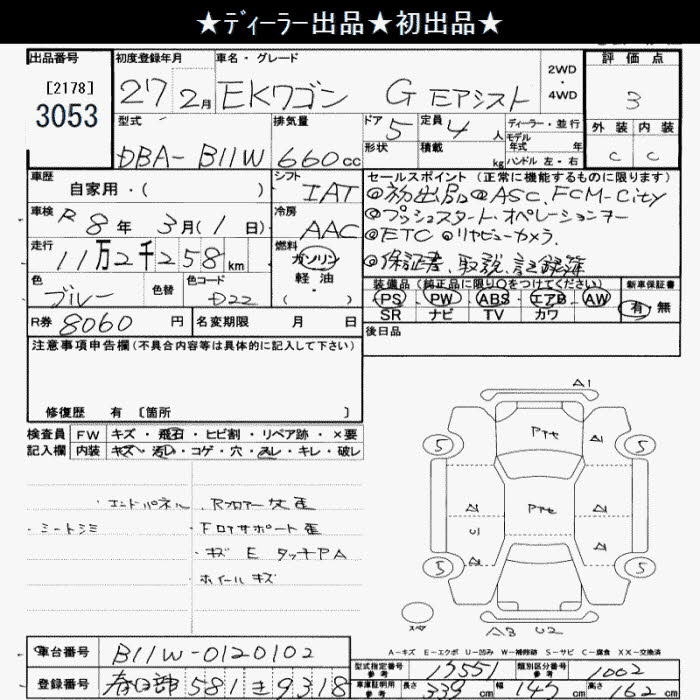 ★ディーラー出品★初出品★
出品番号 [2178] 3053
初度登録年月 27 2月
車名・グレード EKワゴン G Eアシスト
2WD・4WD
評価点 3
外装 内装 C C
型式 DBA-B11W
排気量 660cc
ドア 5 定員 4人
形状 積載 kg
ディーラー・並行
モデル年式 年式
ハンドル 左・右
車歴 自家用・( )
シフト IAT
車検 R8年 3月(1日)
冷房 AAC
走行 11万2千258km
燃料 ガソリン 軽油・( )
色 ブルー 色替 色コード D22
セールスポイント (正常に機能するものに限ります)
◎初出品◎ASC.FCM-City
◎プッシュスタート.オペレーションキー
◎ETC ◎リヤビューカメラ.
◎保証書、取説、記録簿
装備品 (純正品に限り○をつけてください)
PS PW ABS エアB AW
SR ナビ TV カワ
新車保証書 有・無
R券 8060円
名変期限 月 日
後日品
注意事項申告欄 (不具合内容等は具体的に記入して下さい)
修復歴 有 〔箇所 〕
検査員記入欄
FW キズ・飛石・ヒビ割・リペア跡・×要
内装 キズ・汚レ・コゲ・穴・スレ・キレ・破レ
・エンドパネル.Rフロアー歪
・シートシミ
・FロアサポートE歪
・キズ E タッチPA
ホイールキズ
A1
Pte
5 A1 5
A Pte A
U1
A A
5 5
スペア
A3 U2
A-キズ E-エクボ U-凹み W-補修跡 S-サビ C-腐食 XX-交換済
車台番号 B11W-0120102
登録番号 春日部 581 き 9318
型式指定番号 参考 17551
類別区分番号 参考 1002
車庫証明用 参考 長さ 339cm 幅 147cm 高さ 162cm